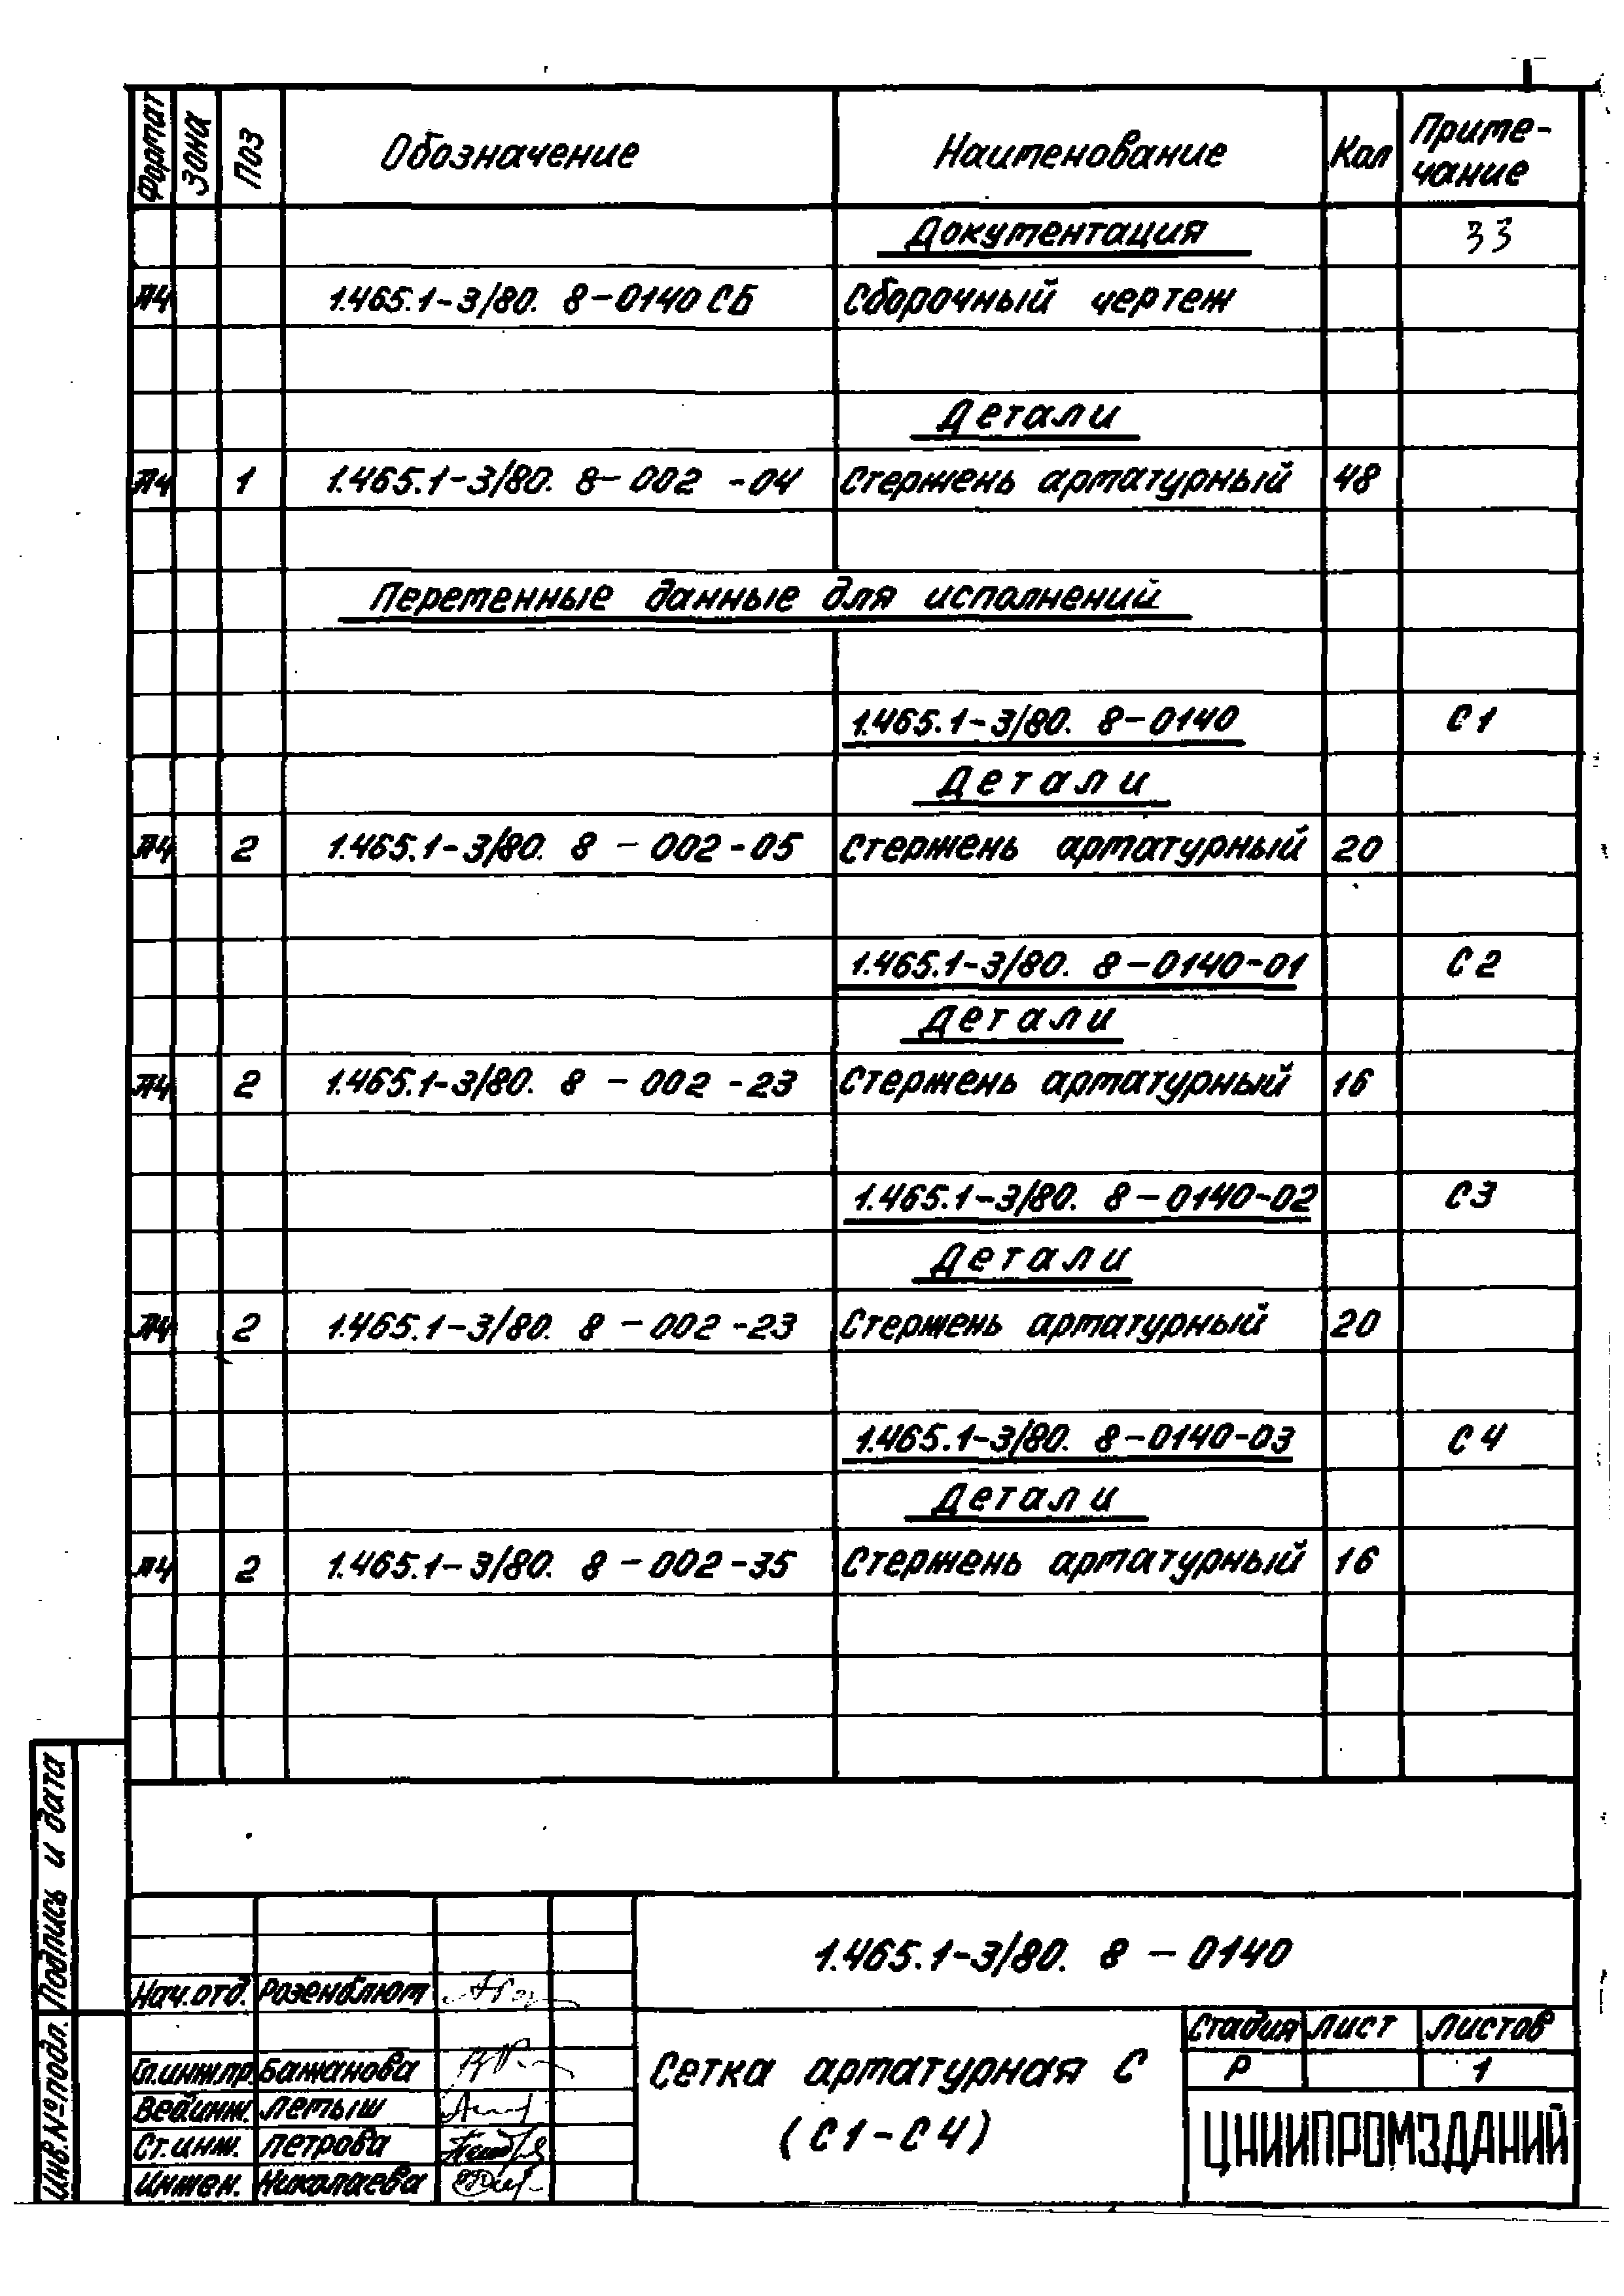 Формат Зона Поз Обозначение Наименование Кол Приме-
чание
Документация 33
А4 1.465.1-3/80. 8-0140 СБ Сборочный чертеж
Детали
А4 1 1.465.1-3/80. 8-002 -04 Стержень арматурный 48
Переменные данные для исполнений
1.465.1-3/80. 8-0140 С1
Детали
А4 2 1.465.1-3/80. 8-002-05 Стержень арматурный 20
1.465.1-3/80. 8-0140-01 С2
Детали
А4 2 1.465.1-3/80. 8-002-23 Стержень арматурный 16
1.465.1-3/80. 8-0140-02 С3
Детали
А4 2 1.465.1-3/80. 8-002-23 Стержень арматурный 20
1.465.1-3/80. 8-0140-03 С4
Детали
А4 2 1.465.1-3/80. 8-002-35 Стержень арматурный 16
Подпись и дата
Инв.№подл.
1.465.1-3/80. 8-0140
Нач.отд. Розенблюм
Гл.инж.пр. Бажанова
Вед.инж. Летыш
Ст.инж. Петрова
Инжен. Николаева
Сетка арматурная С
(С1-С4)
Стадия Лист Листов
Р 1
ЦНИИПРОМЗДАНИЙ